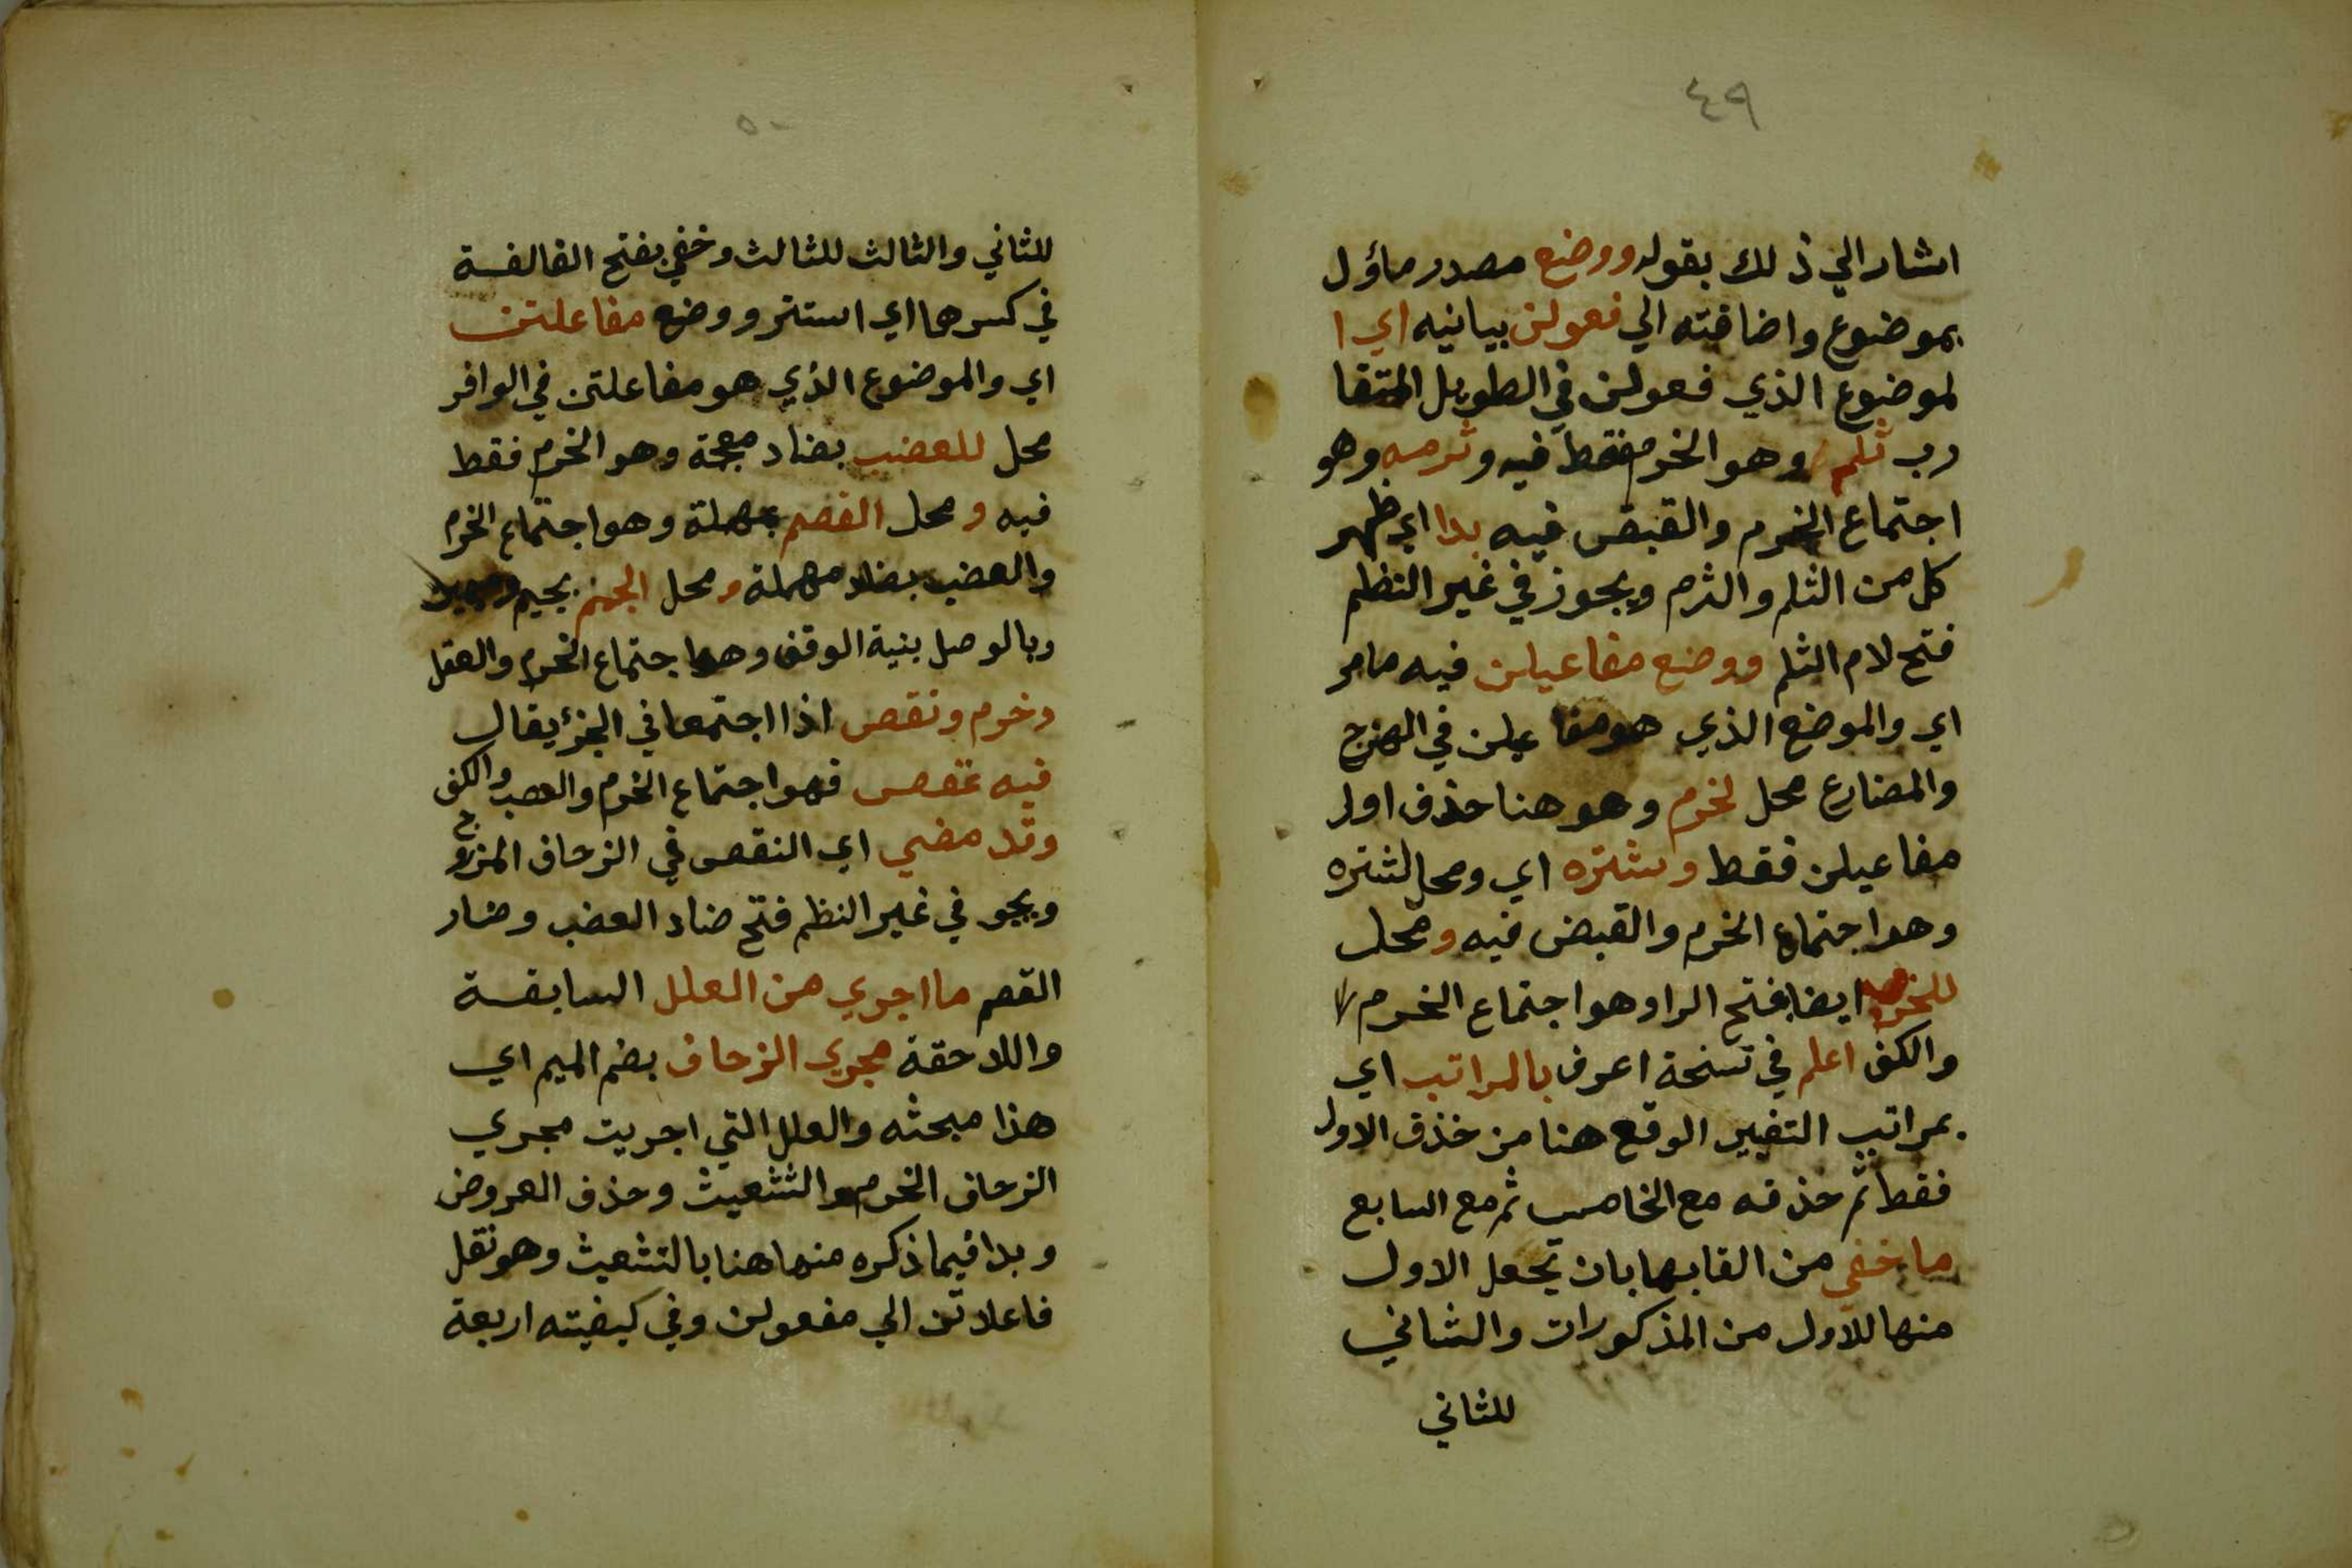 ٤٩
اشار الي ذلك بقوله ووضع مصدر مأؤل
بموضوع واضافته الي فعولن بيانيه اي ا
لموضوع الذي فعولن في الطويل المتقا
رب ثلم وهو الخرم فقط فيه وثرمه وهو
اجتماع الخرم والقبض فيه بدا اي ظهر
كل من الثلم والثرم ويجوز في غير النظم
فتح لام الثلم ووضع مفاعيلن فيه مامر
اي والموضع الذي هو مفا عيلن في الهزج
والمضارع محل لخرم وهو هنا حذف اول
مفاعيلن فقط وشتره اي ومحل لشتره
وهو اجتماع الخرم والقبض فيه ومحل
للخرب ايضا بفتح الرا وهو اجتماع الخرم
والكف اعلم في نسخة اعرف بالمراتب اي
بمراتب التغيير الوقع هنا من خذف الاول
فقط ثم حذفه مع الخامس ثم مع السابع
ما خفي من القابها بان تجعل الاول
منها للاول من المذكورات والثاني
للثاني
٥٠
للثاني والثالث للثالث وخفي بفتح الفالفة
في كسرها اي استتر ووضع مفاعلتن
اي والموضوع الذي هو مفاعلتن في الوافر
محل للعضب بضاد معجمة وهو الخرم فقط
فيه ومحل القصم بمهملة وهو اجتماع الخرم
والعضب بضاد مهملة ومحل الجمم بجيم
وبالوصل بنية الوقف وهو اجتماع الخرم والعقل
وخرم ونقص اذا اجتمعا في الجزء يقال
فيه عقص فهو اجتماع الخرم والعصب والكف
وقد مضي اي النقص في الزحاف المزدوج
ويجو في غير النظم فتح ضاد العضب وضار
القصم ما اجري من العلل السابقة
واللاحقة مجري الزحاف بضم الميم اي
هذا مبحثه والعلل التي اجريت مجري
الزحاف الخرم والتشعيث وحذف العروض
وبدا فيما ذكره منها هنا بالتشعيث وهو نقل
فاعلاتن الي مفعولن وفي كيفيته اربعة